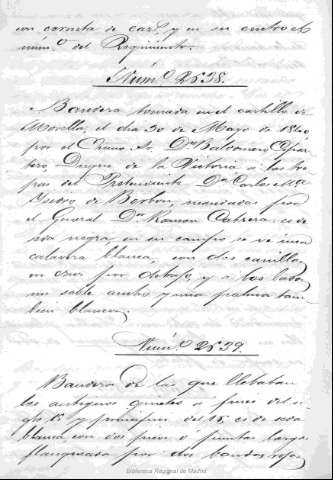 con corneta de caza, y en su centro el
núm.º del Regimiento.
Núm.º 2538.
Bandera tomada en el castillo de
Morella, el dia 30 de Mayo de 1840,
por el Excmo. Sr. Dn. Baldomero Espar
tero, Duque de la Victoria á las tro
pas del Pretendiente Dn. Carlos Mª
Isidro de Borbon, mandadas por
el General Dn. Ramon Cabrera: es de
seda negra, en su campo se ve una
calavera blanca, con dos canillas
en cruz por debajo, y á los lados
un sable ancho y una palma tam
bien blancos.
Núm.º 2539.
Bandera de las que llebaban
las antiguas á fines del si
glo 14 y principios del 15. es de seda
blanca con dos puntas largas
flanqueada por dos bandas rojas
Biblioteca Regional de Madrid